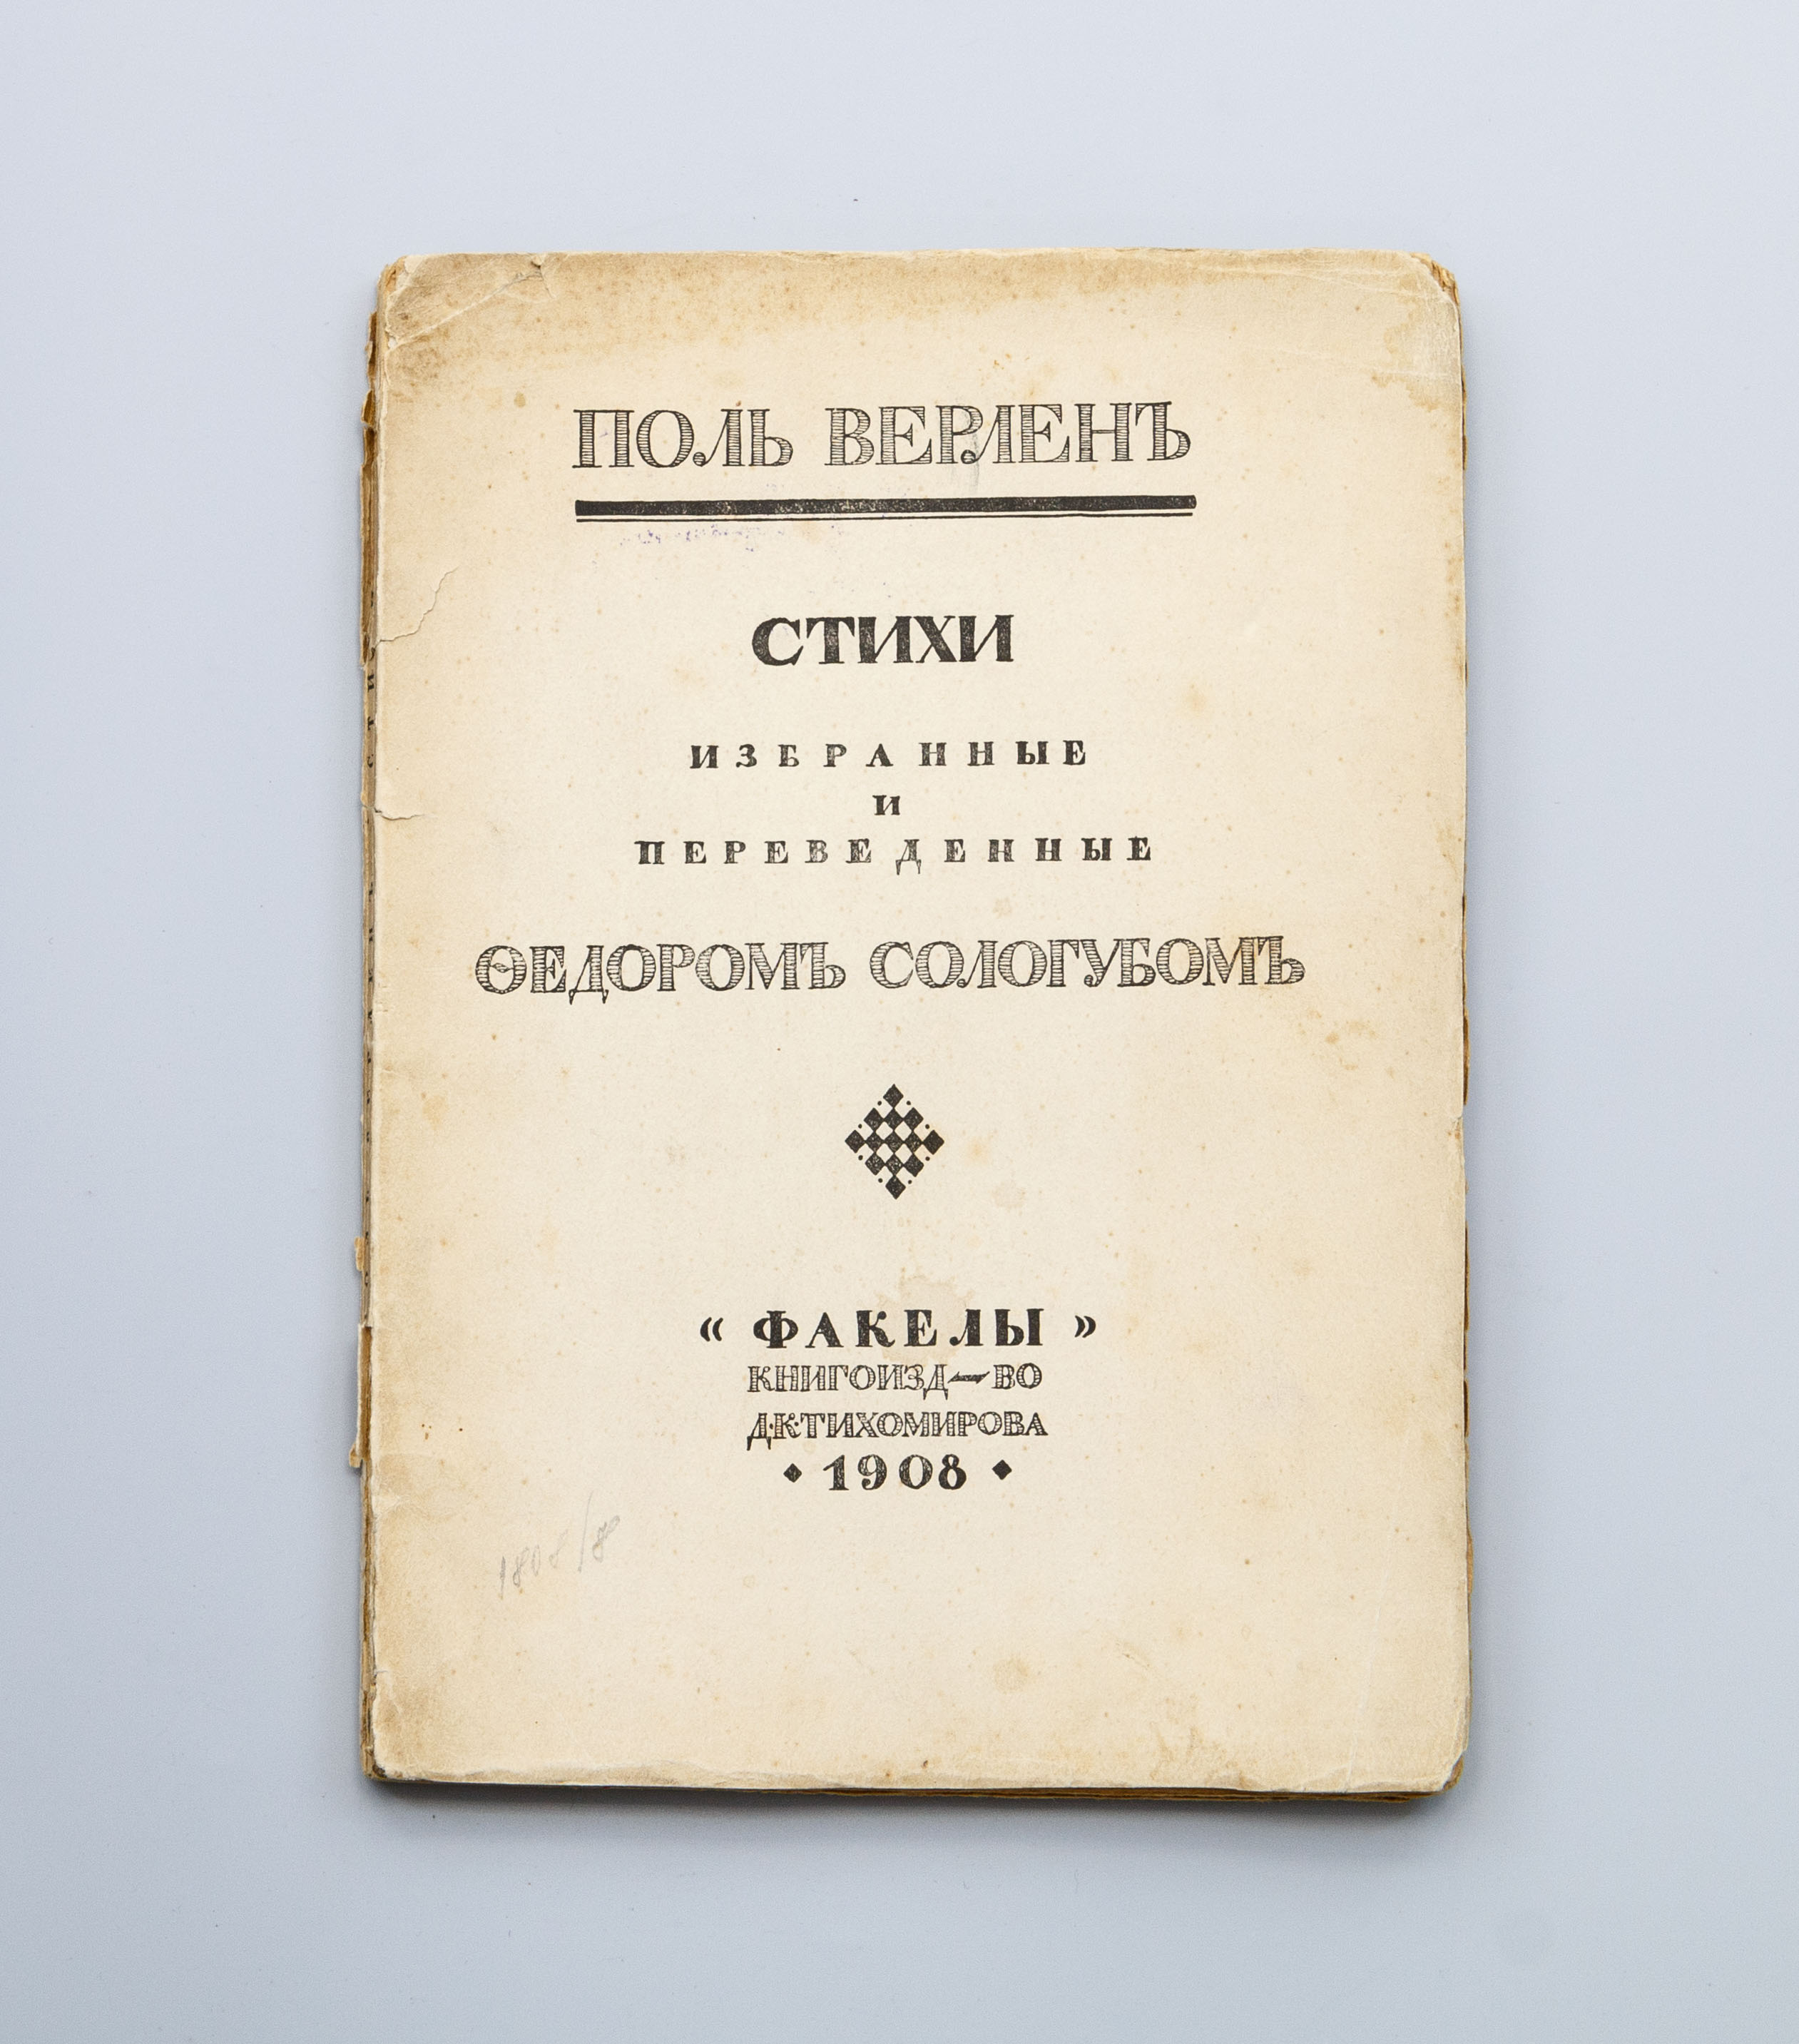 ПОЛЬ ВЕРЛЕНЪ
СТИХИ
ИЗБРАННЫЕ
И
ПЕРЕВЕДЕННЫЕ
ѲЕДОРОМЪ СОЛОГУБОМЪ
« ФАКЕЛЫ »
КНИГОИЗД—ВО
Д·К·ТИХОМИРОВА
1908
1808/8